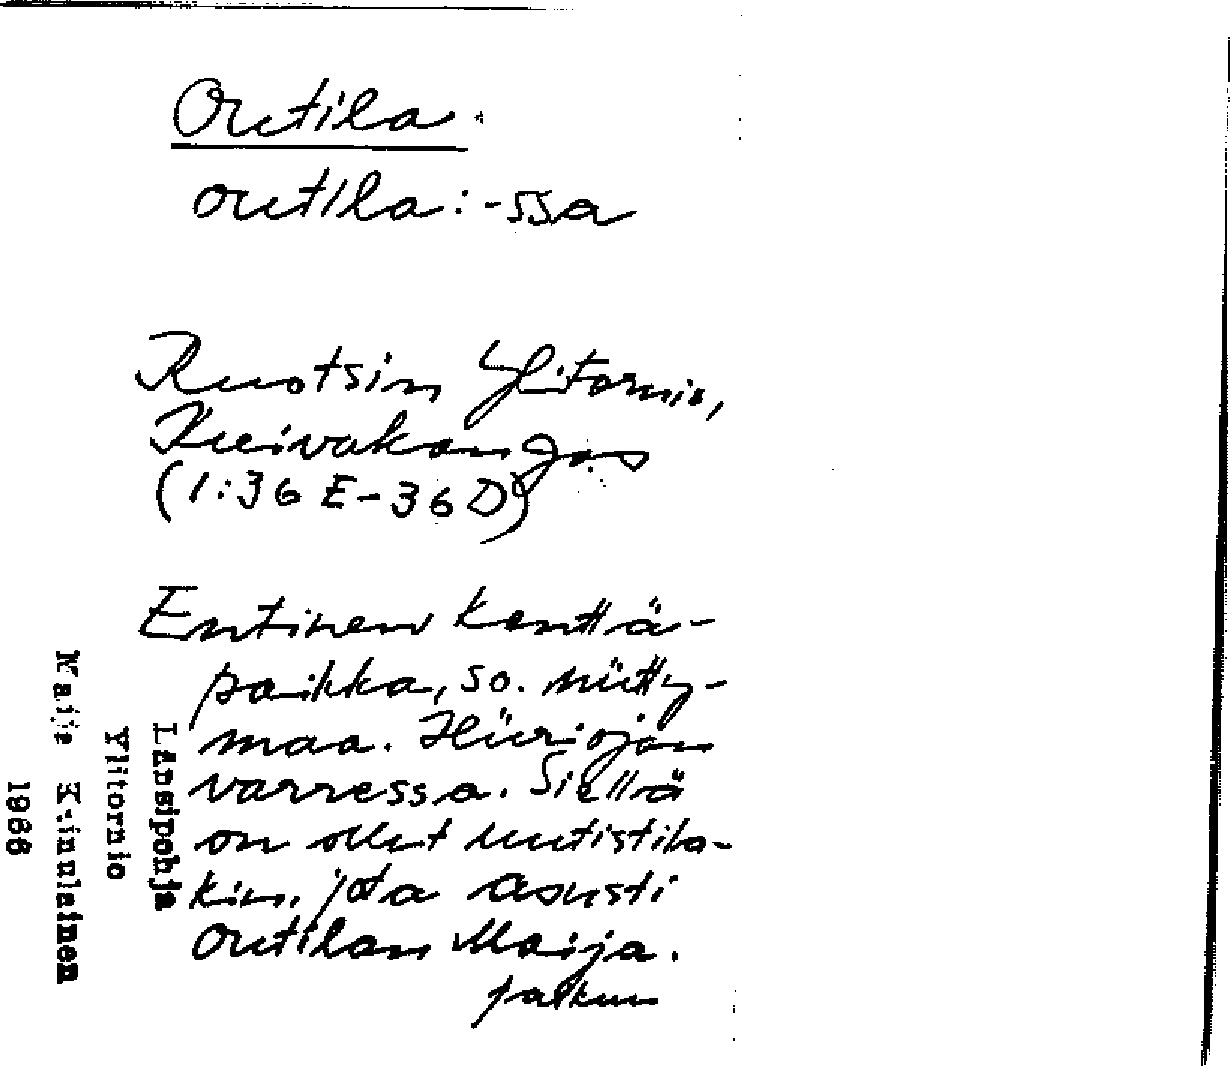 Outila.
outila: -ssa
Ruotsin Ylitornio,
Kuivakangas
(1:36 E-36 D)
Entinen kenttä-
paikka, so. niitty-
maa. Hiiriojan
varressa. Siellä
on ollut uutistila-
kin, jota asusti
Outilan Maija.
jatkuu
Länsipohja
Ylitornio
Maija Kinnlainen
1966